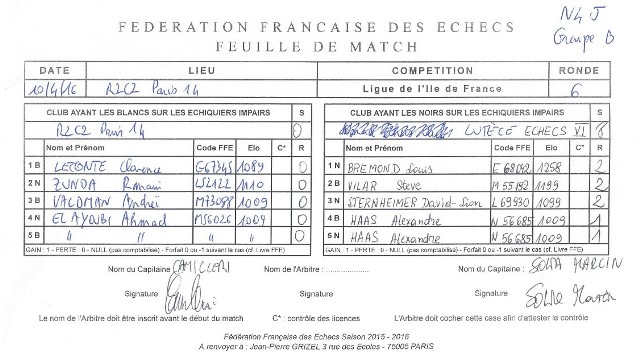 N4 J
Groupe B
FEDERATION FRANCAISE DES ECHECS
FEUILLE DE MATCH
DATE LIEU COMPETITION RONDE
10/4/16 R2C2 Paris 14 Ligue de l'Ile de France 6
CLUB AYANT LES BLANCS SUR LES ECHIQUIERS IMPAIRS S CLUB AYANT LES NOIRS SUR LES ECHIQUIERS IMPAIRS S
R2C2 Paris 14 0 LUTÈCE ECHECS VI 8
Nom et Prénom Code FFE Elo C* R Nom et Prénom Code FFE Elo C* R
1 B LECONTE Clarence G67345 1089 0 1 N BREMOND Louis E 68042 1258 2
2 N ZUNDA Romain L52122 1110 0 2 B VILAR Steve M 55192 1199 2
3 B VALDMAN Andreï M73088 1009 0 3 N STERNHEIMER David-Sion L 69930 1099 2
4 N EL AYOUBI Ahmad M56026 1009 0 4 B HAAS Alexandre N 56685 1009 1
5 B " " " " 0 5 N HAAS Alexandre N 56685 1009 1
GAIN : 1 - PERTE : 0 - NULL (pas comptabilisé) - Forfait 0 ou -1 suivant le cas (cf. Livre FFE) GAIN : 1 - PERTE : 0 - NULL (pas comptabilisé) - Forfait 0 ou -1 suivant le cas (cf. Livre FFE)
Nom du Capitaine CAMILLERI Nom de l'Arbitre : Nom du Capitaine : SOLTA MARCIN
Signature Signature Signature
Le nom de l'Arbitre doit être inscrit avant le début du match C* : contrôle des licences L'arbitre doit cocher cette case afin d'attester le contrôle
Fédération Française des Echecs Saison 2015 - 2016
A renvoyer à : Jean-Pierre GRIZEL 3 rue des Ecoles - 75005 PARIS